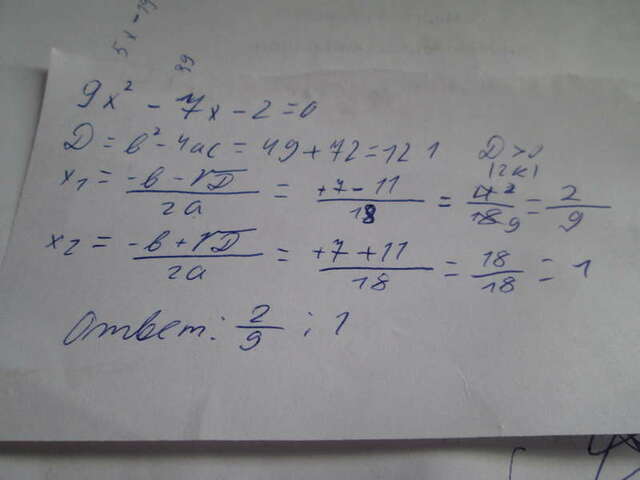 5x - 19
99
9x² - 7x - 2 = 0
D = b² - 4ac = 49 + 72 = 121 D > 0 (2к)
x₁ = (-b - √D)/2a = (+7 - 11)/18 = 4/18 = 2/9
x₂ = (-b + √D)/2a = (+7 + 11)/18 = 18/18 = 1
Ответ: 2/9 ; 1